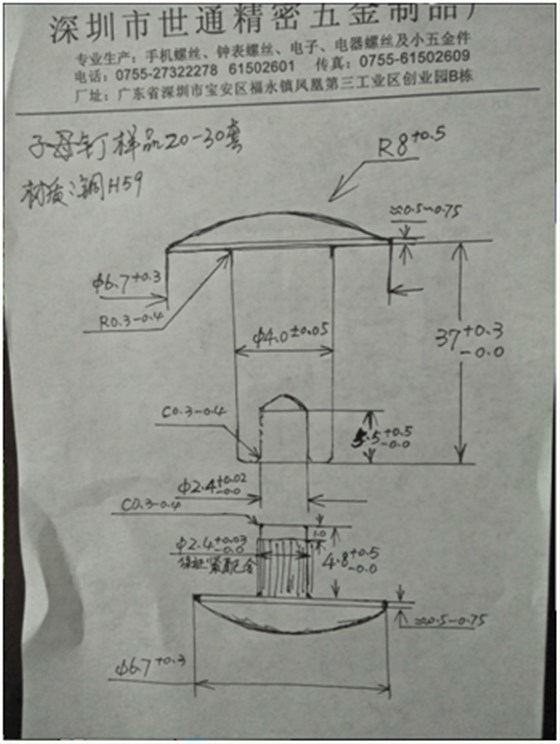 深圳市世通精密五金制品厂
专业生产：手机螺丝、钟表螺丝、电子、电器螺丝及小五金件
电话：0755-27322278 61502601 传真：0755-61502609
厂址：广东省深圳市宝安区福永镇凤凰第三工业区创业园B栋
子母钉样品20-30套
材质：铜H59
R8+0.5
≈0.5-0.75
φ6.7+0.3
R0.3-0.4
φ4.0±0.05
37+0.3
-0.0
C0.3-0.4
5.5+0.5
-0.0
φ2.4+0.02
-0.0
C0.3-0.4
1.0
φ2.4+0.03
-0.0
紧配合
4.8+0.5
-0.0
≈0.5-0.75
φ6.7+0.3